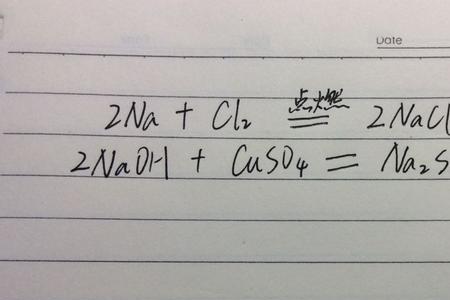 Date
点燃
2Na + Cl₂ = 2NaCl
2NaOH + CuSO₄ = Na₂S